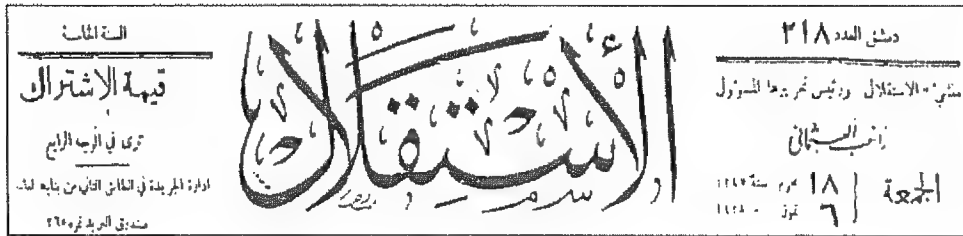 دمشق العدد ٢١٨
منشيء الاستقلال ورئيس تحريرها المسؤول
راغب العثماني
الجمعة
١٨ محرم سنة ١٣٤٧
٦ تموز ١٩٢٨
الاستقلال
السنة الخامسة
قيمة الاشتراك
ترى في الوجه الرابع
ادارة الجريدة في الطابق الثاني من بناية
صندوق البريد نمره ٢٦٥